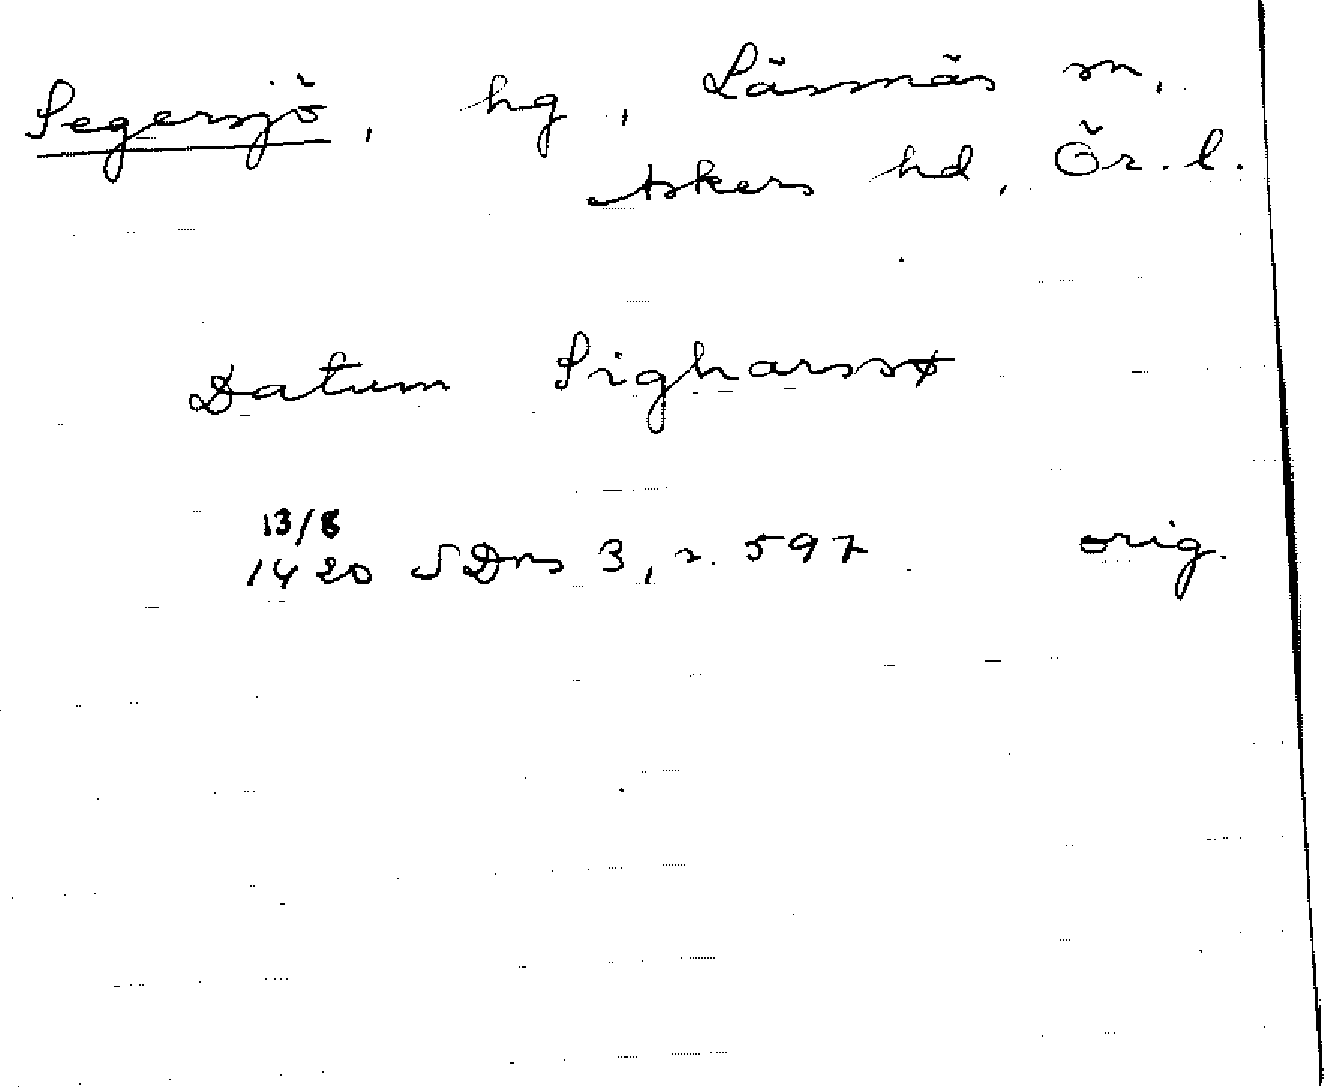 Segersjö, hg, Lännäs sn,
Askers hd, Ör. l.
Datum Sigharssø
13/8
1420 SDns 3, s. 597 orig.